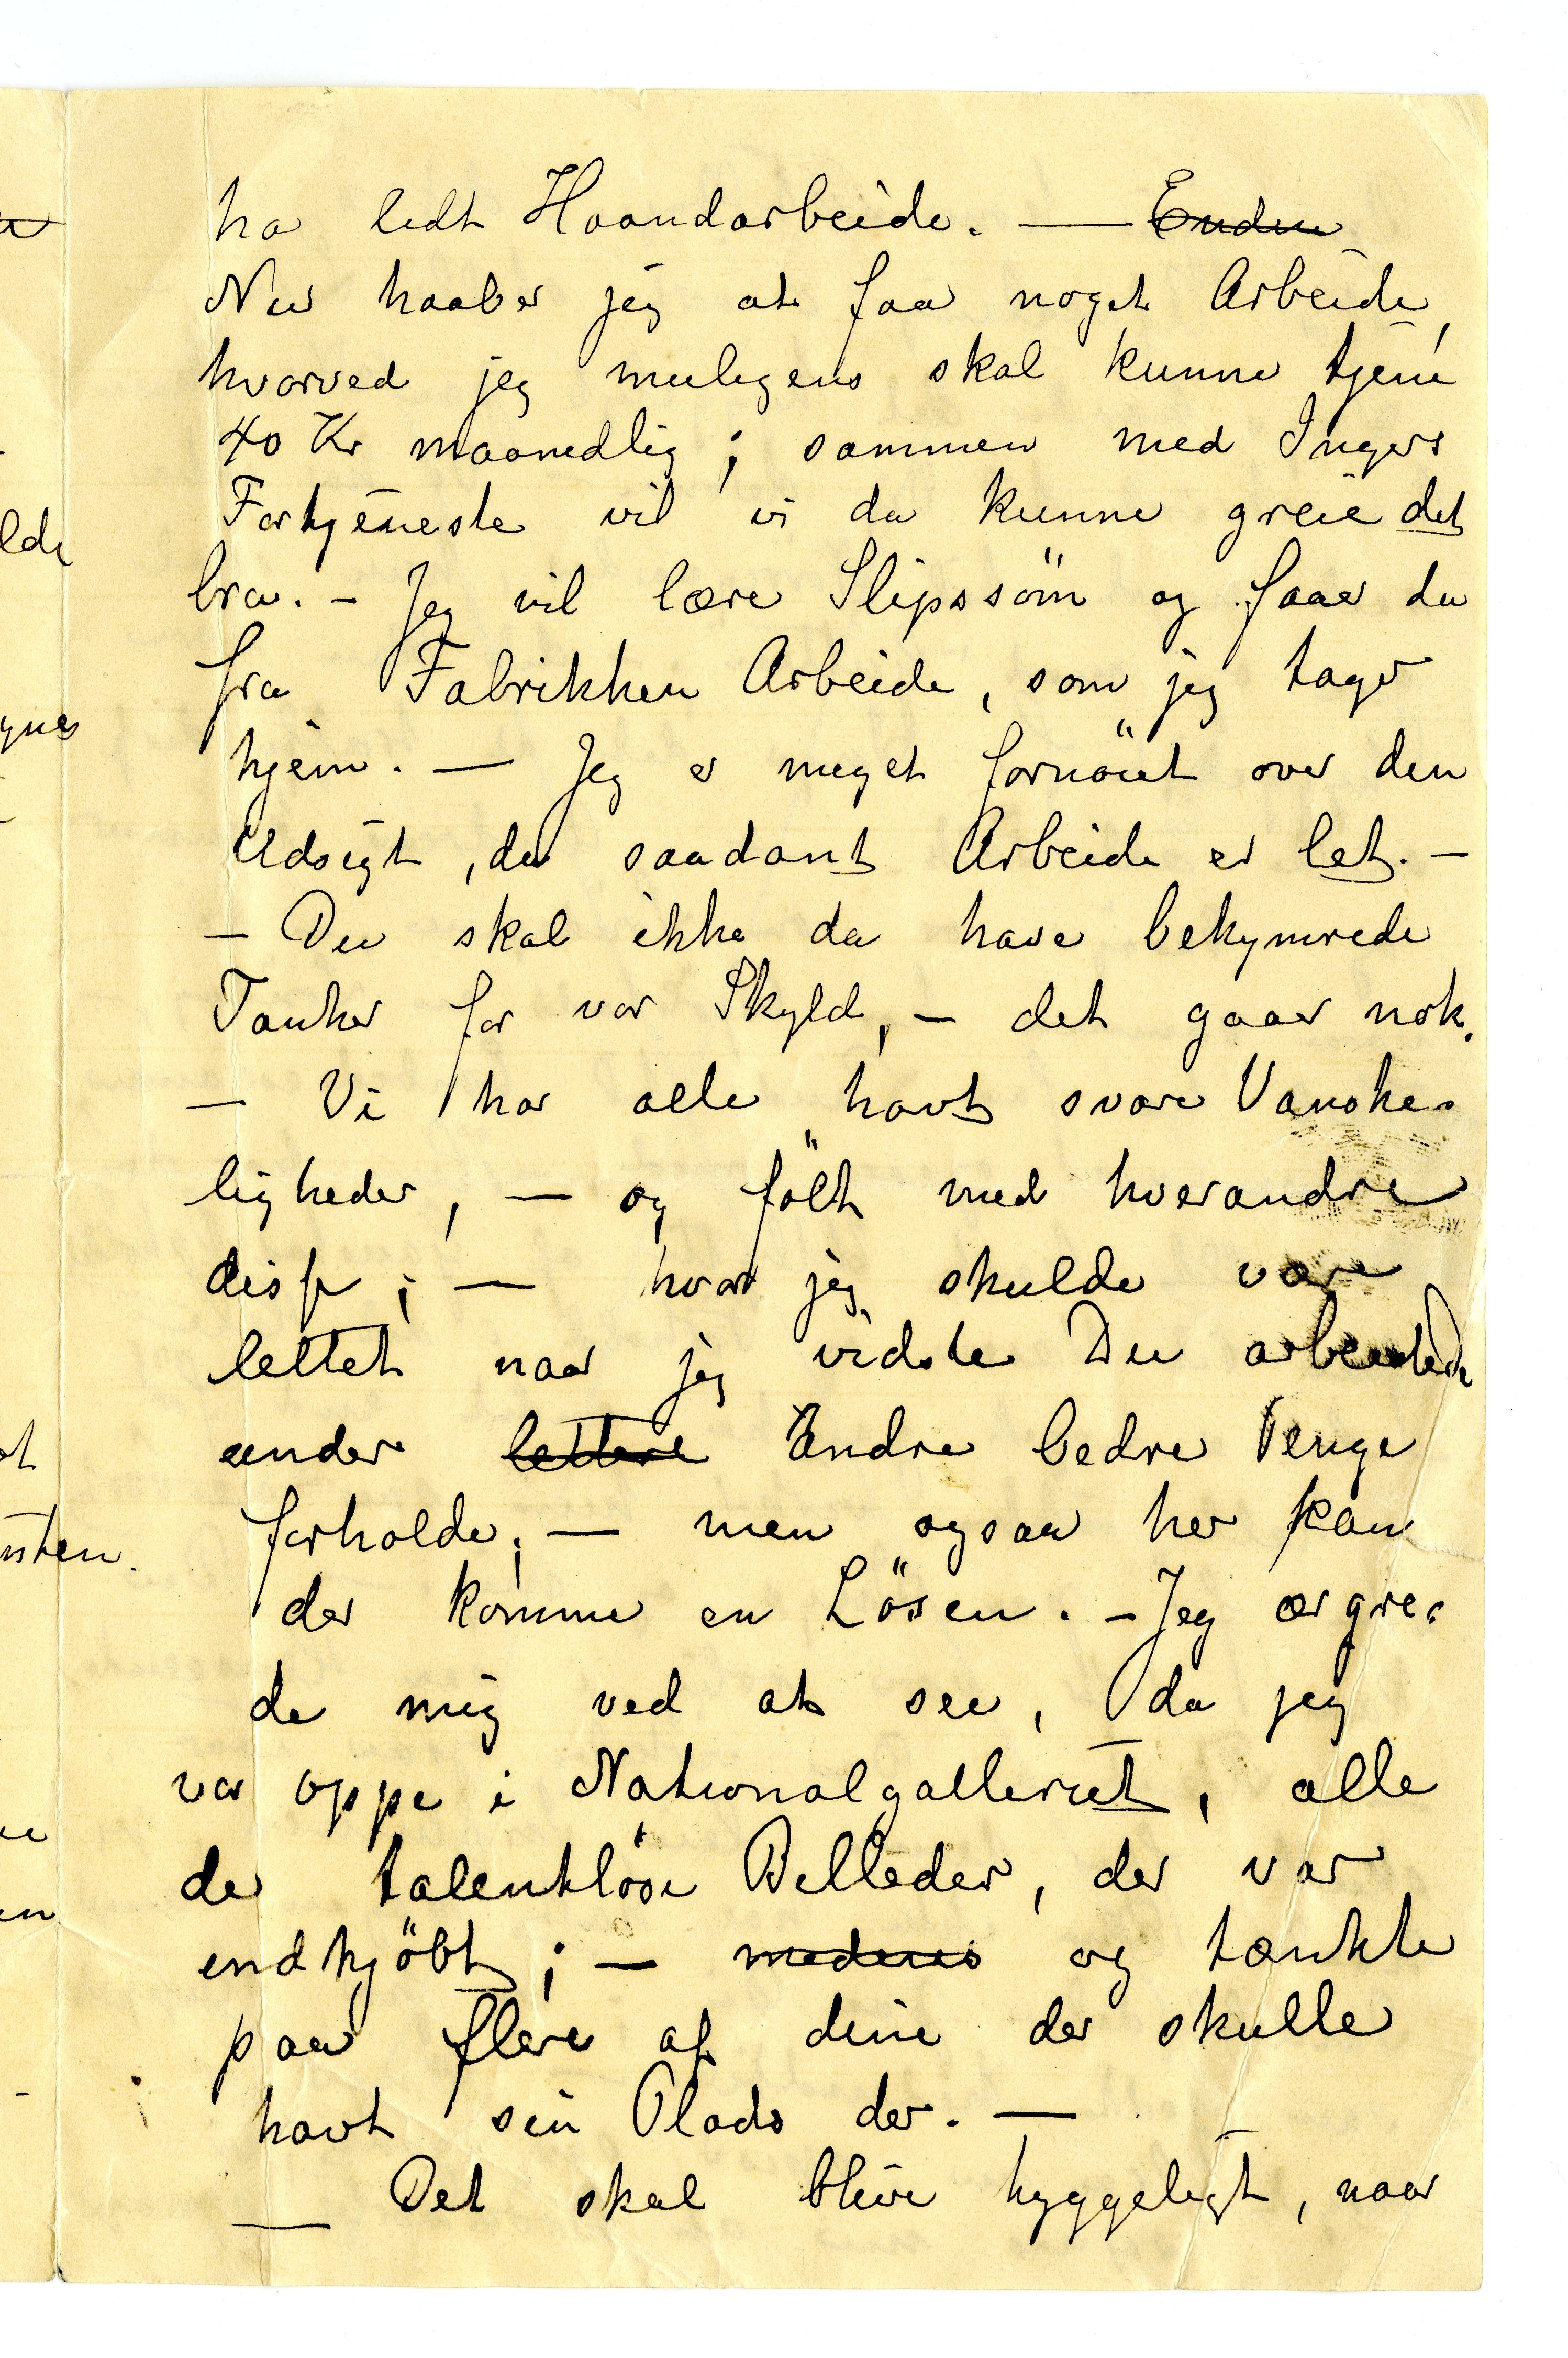 ha ledt Haandarbeide. — Enden
Nu haaber jeg at faa noget Arbeide,
hvorved jeg muligens skal kunne tjene
40 Kr maanedlig; sammen med Ingers
Fortjeneste vil vi da kunne greie det
bra. – Jeg vil lære Slipssöm og faar da
fra Fabrikken Arbeide, som jeg tager
hjem. — Jeg er meget fornöiet over den
Udsigt, da saadant Arbeide er let. –
– Du skal ikke da have bekymrede
Tanker for vor Skyld, – det gaar nok.
— Vi har alle havt svære Vanske-
ligheder, — og fölt med hverandre
disse; — hvor jeg skulde være
lettet naar jeg vidste Du arbeidede
under lettere Andre bedre Penge
forholde; — men ogsaa her kan
der komme en Lösen. – Jeg ærgre-
de mig ved at see, da jeg
var oppe i Nationalgalleriet, alle
de talentlöse Billeder, der var
indkjöbt; — medens og tænkte
paa flere af dine der skulle
havt sin Plads der. —
— Det skal blive hyggeligt, naar